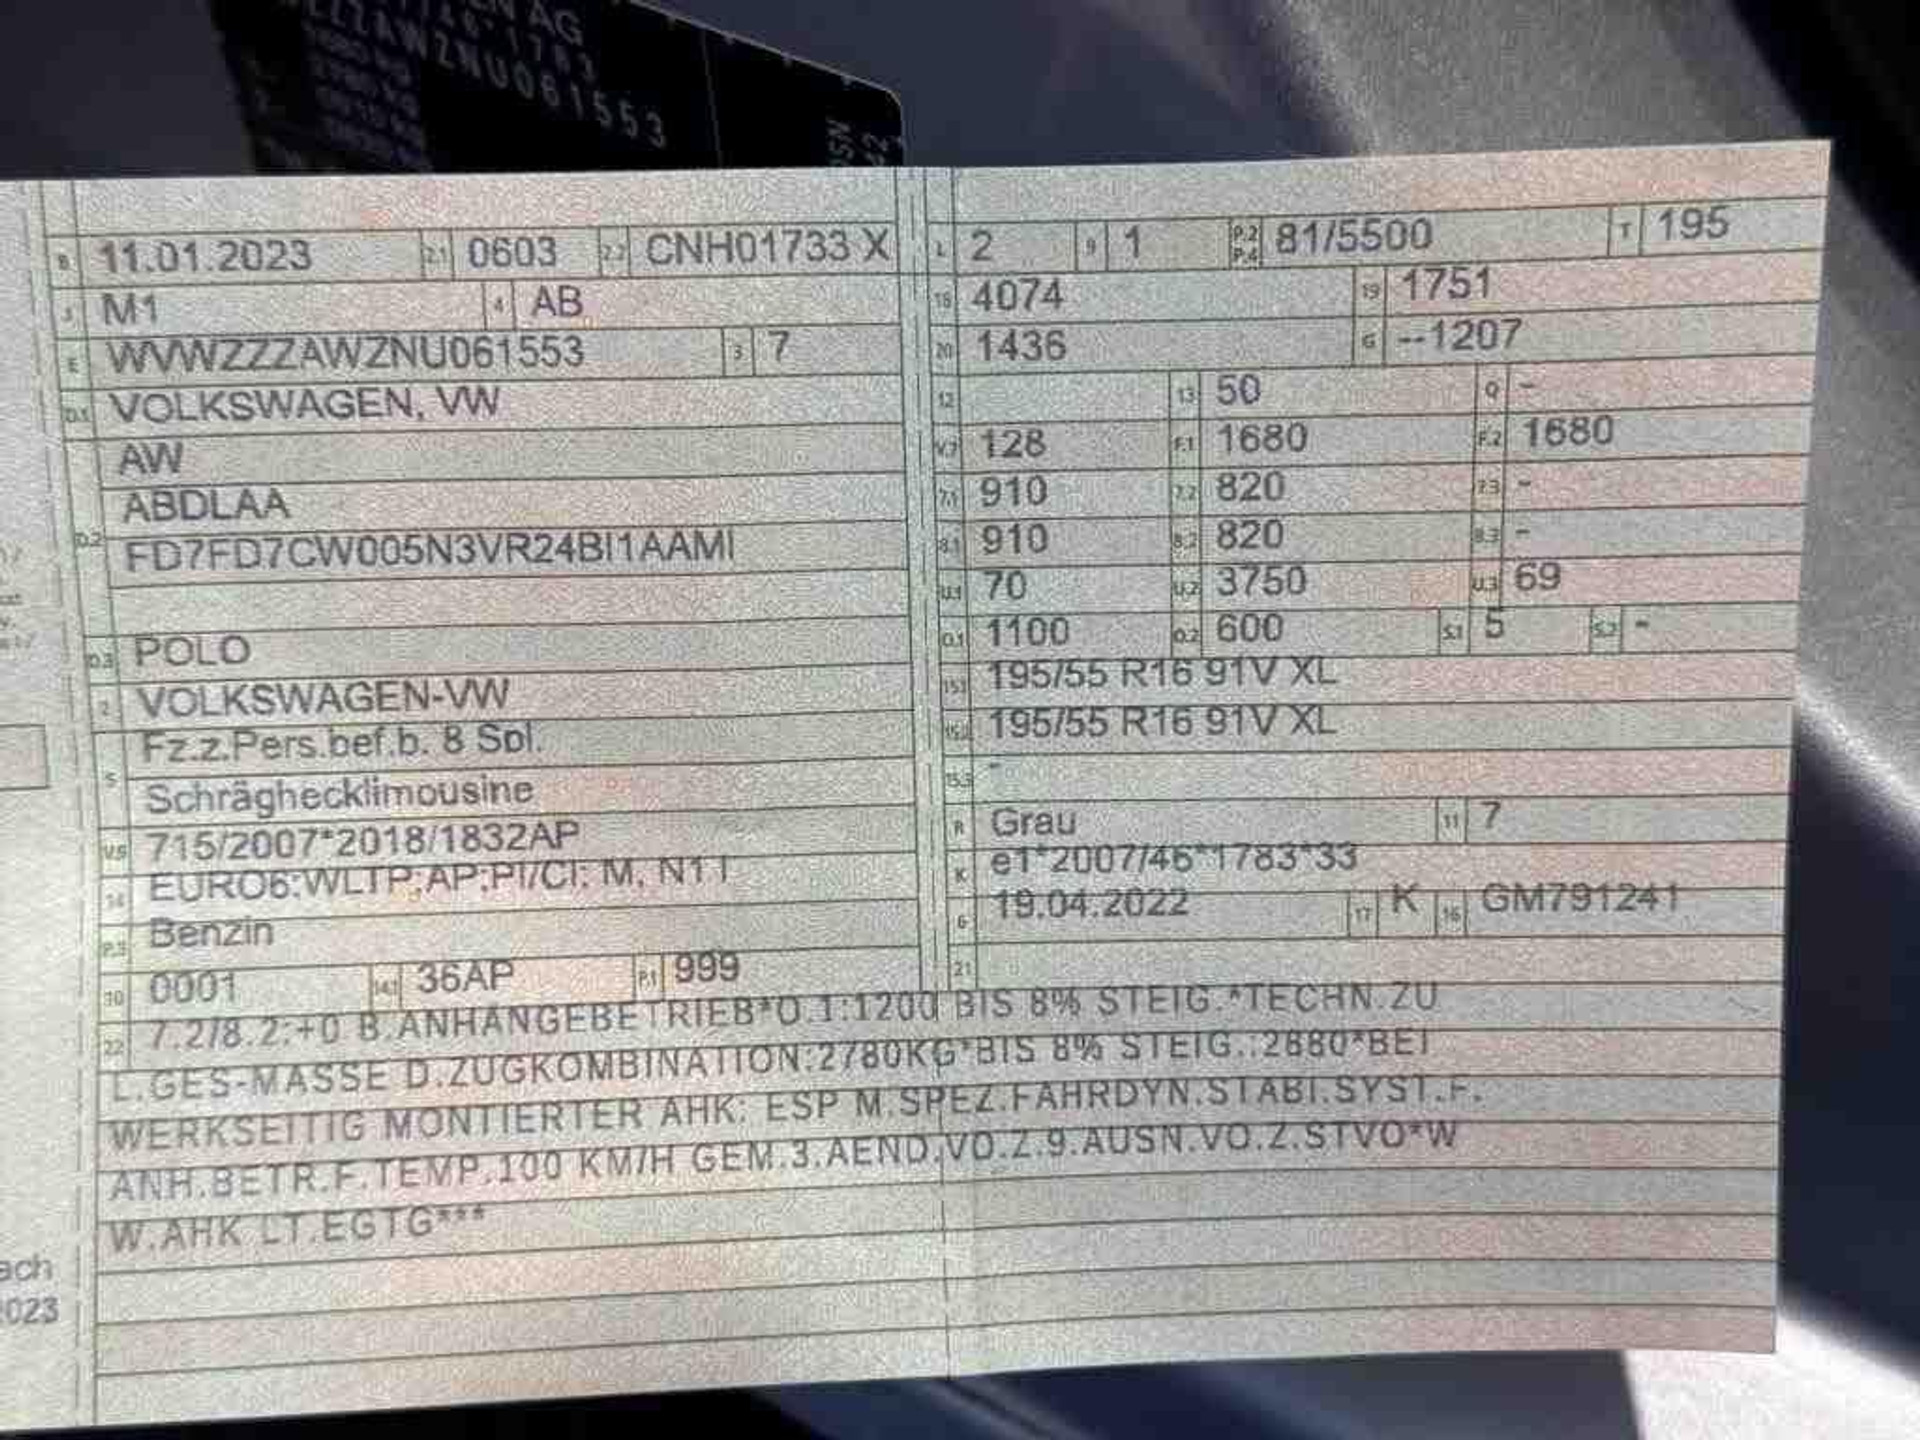 EN AG
ZZZAWZNU061553
B 11.01.2023 2.1 0603 2.2 CNH01733 X
J M1 4 AB
E WVWZZZAWZNU061553 3 7
D.1 VOLKSWAGEN, VW
AW
ABDLAA
D.2 FD7FD7CW005N3VR24BI1AAMI
D.3 POLO
2 VOLKSWAGEN-VW
Fz.z.Pers.bef.b. 8 Spl.
5 Schräghecklimousine
V.9 715/2007*2018/1832AP
14 EURO6;WLTP;AP;PI/CI; M, N1 I
P.3 Benzin
10 0001 14.1 36AP P.1 999
L 2 9 1 P.2 P.4 81/5500 T 195
18 4074 19 1751
20 1436 G --1207
12 13 50 Q -
V.7 128 F.1 1680 F.2 1680
7.1 910 7.2 820 7.3 -
8.1 910 8.2 820 8.3 -
U.1 70 U.2 3750 U.3 69
O.1 1100 O.2 600 S.1 5 S.2 -
15.1 195/55 R16 91V XL
15.2 195/55 R16 91V XL
15.3 -
R Grau 11 7
K e1*2007/46*1783*33
6 19.04.2022 17 K 16 GM791241
21
22 7.2/8.2:+0 B.ANHÄNGEBETRIEB*O.1:1200 BIS 8% STEIG.*TECHN.ZU
L.GES-MASSE D.ZUGKOMBINATION:2780KG*BIS 8% STEIG.:2880*BEI
WERKSEITIG MONTIERTER AHK: ESP M.SPEZ.FAHRDYN.STABI.SYST.F.
ANH.BETR.F.TEMP.100 KM/H GEM.3.AEND.VO.Z.9.AUSN.VO.Z.STVO*W
W.AHK LT.EGTG***
ach
2023